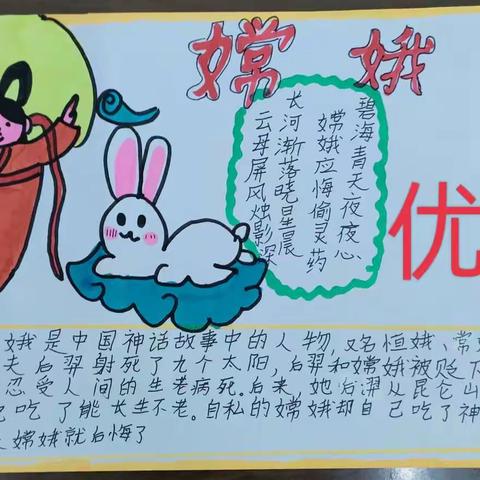 嫦娥
碧海青天夜夜心
嫦娥应悔偷灵药
长河渐落晓星晨
云母屏风烛影深
优
娥是中国神话故事中的人物,又名恒娥、常
夫后羿射死了九个太阳,后羿和嫦娥被贬下
忍受人间的生老病死。后来,她后羿从昆仑山
吃了能长生不老。自私的嫦娥却自己吃了神
嫦娥就后悔了